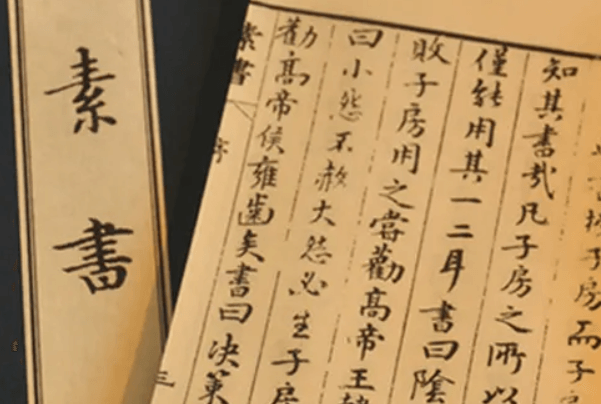 素書
子房而子
知其書哉凡子房之所以
僅能用其一二耳書曰陰
敗子房用之嘗勸高帝王
曰小怨不赦大怨必生子房
勸高帝侯雍齒矣書曰决策
素書 序 三